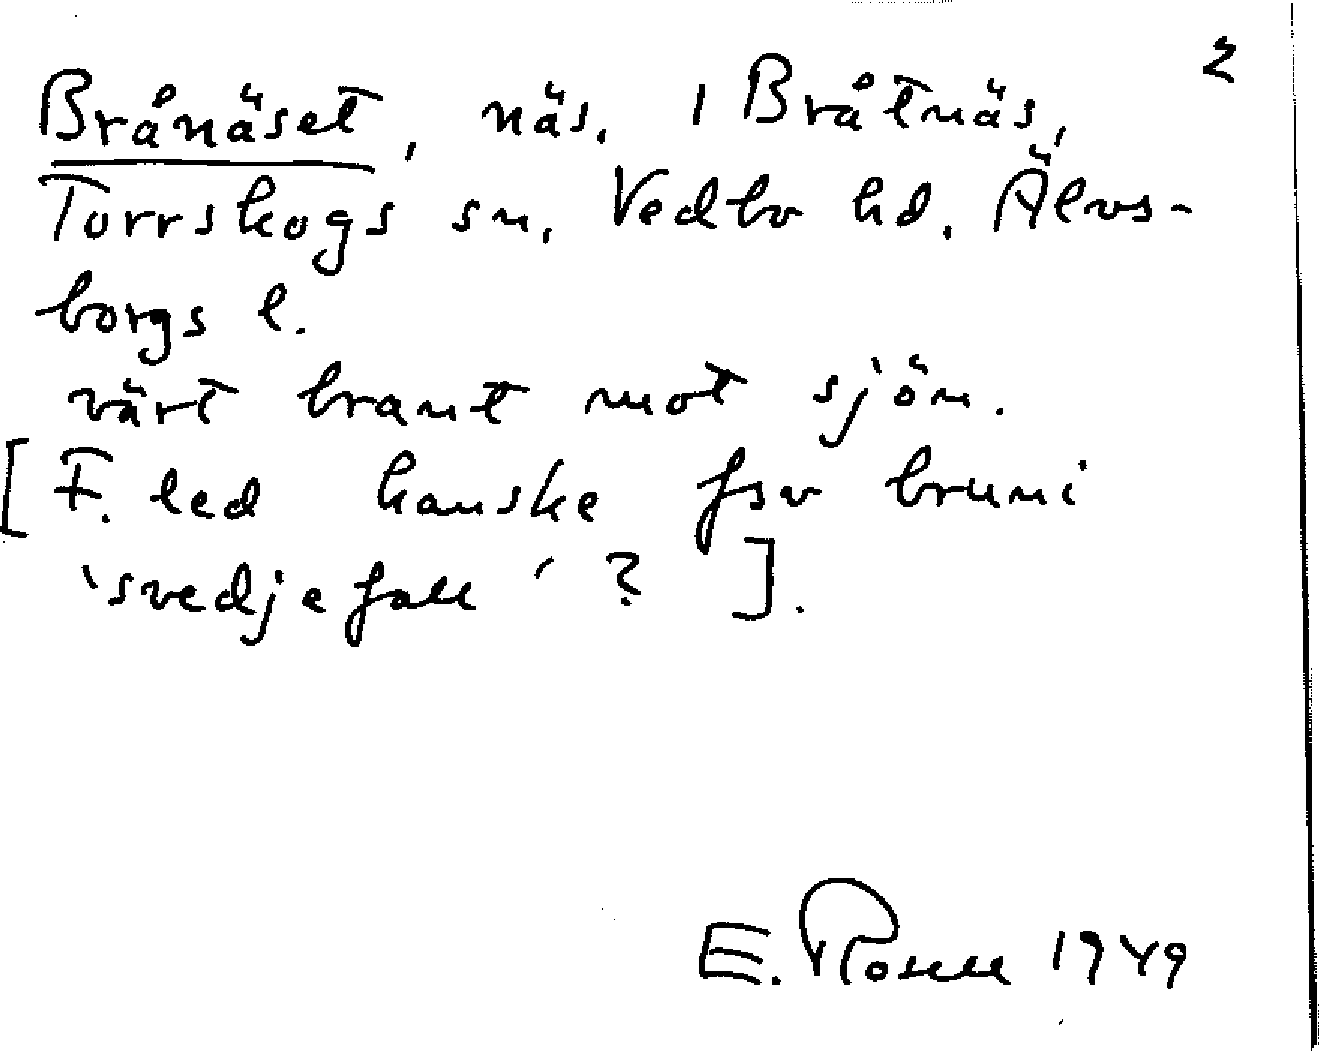 2
Brånäset, näs. 1 Bråtnäs,
Torrskogs sn, Vedbo hd. Älvs-
borgs l.
värt brant mot sjön.
[F. led kanske fsv bruni
'svedjefall'? ].
E. Rosell 1949